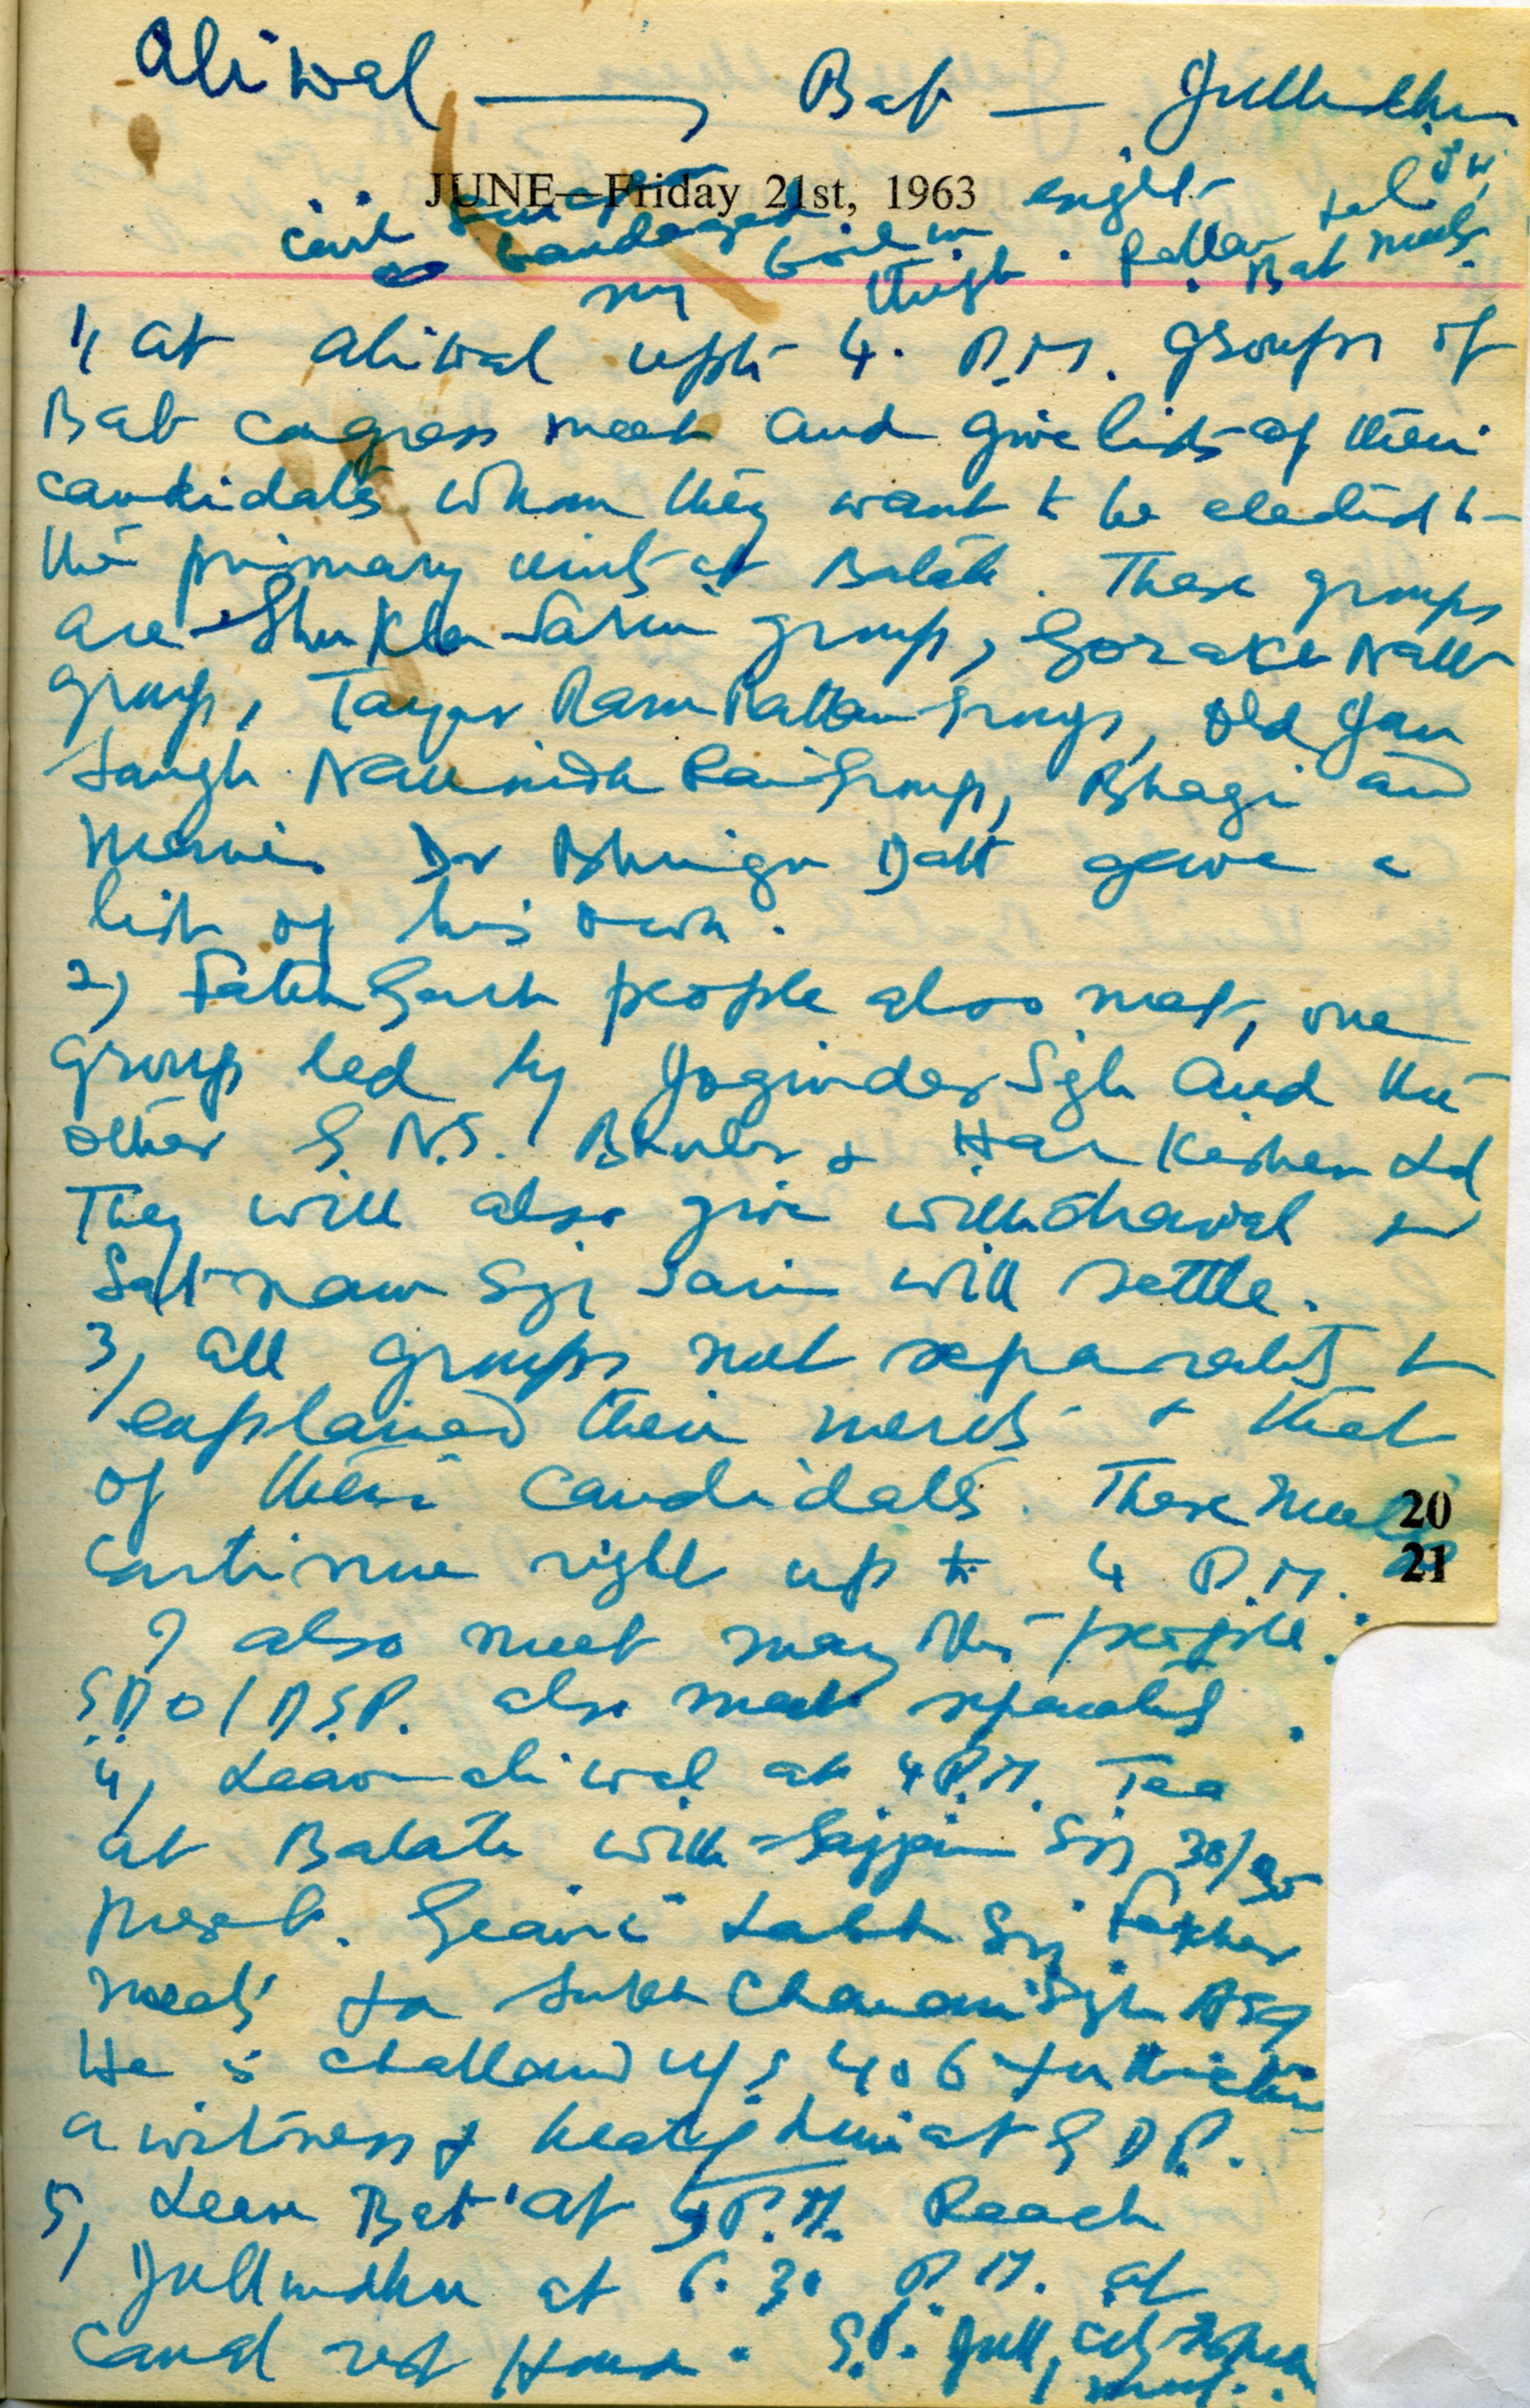 Aliwal — Bat — Jullundhur
JUNE—Friday 21st, 1963
bandaged boil in right
my thigh.
1, At Aliwal upto 4. P.M. Groups of
Bat Congress meet and give lists of their
candidates whom they want to be elected to
the primary units at Batala. These groups
are Shukla Sarin group, Gorakh Nath
group, Ram Rattan Group, old Jan
Sangh Group, Bhagi and
Dr Bhrigu Datt gave a
list of his own.
2, FatehGarh people also met, one
group led by Joginder Sgh and the
other G.N.S. & Har Kishen Lal
They will also give withdrawal and
Satnam Sgh will settle.
3, All groups met separately &
explained their merits & that
of their candidates. These meets
20
continue right up to 4 P.M.
21
I also meet many other people.
S.D.O/D.S.P. also meet separately.
4, Leave Aliwal at 4 P.M. Tea
at Batala with Sajjan Sgh 30/35
present. Giani Labh Sgh Father
meets for Sukh
He is challaned u/s 406 for
a witness & beating him at
5, Leave Bat at 5 P.M. Reach
Jullundhur at 6.30 P.M. at
Canal rest House. S.P. Jull,